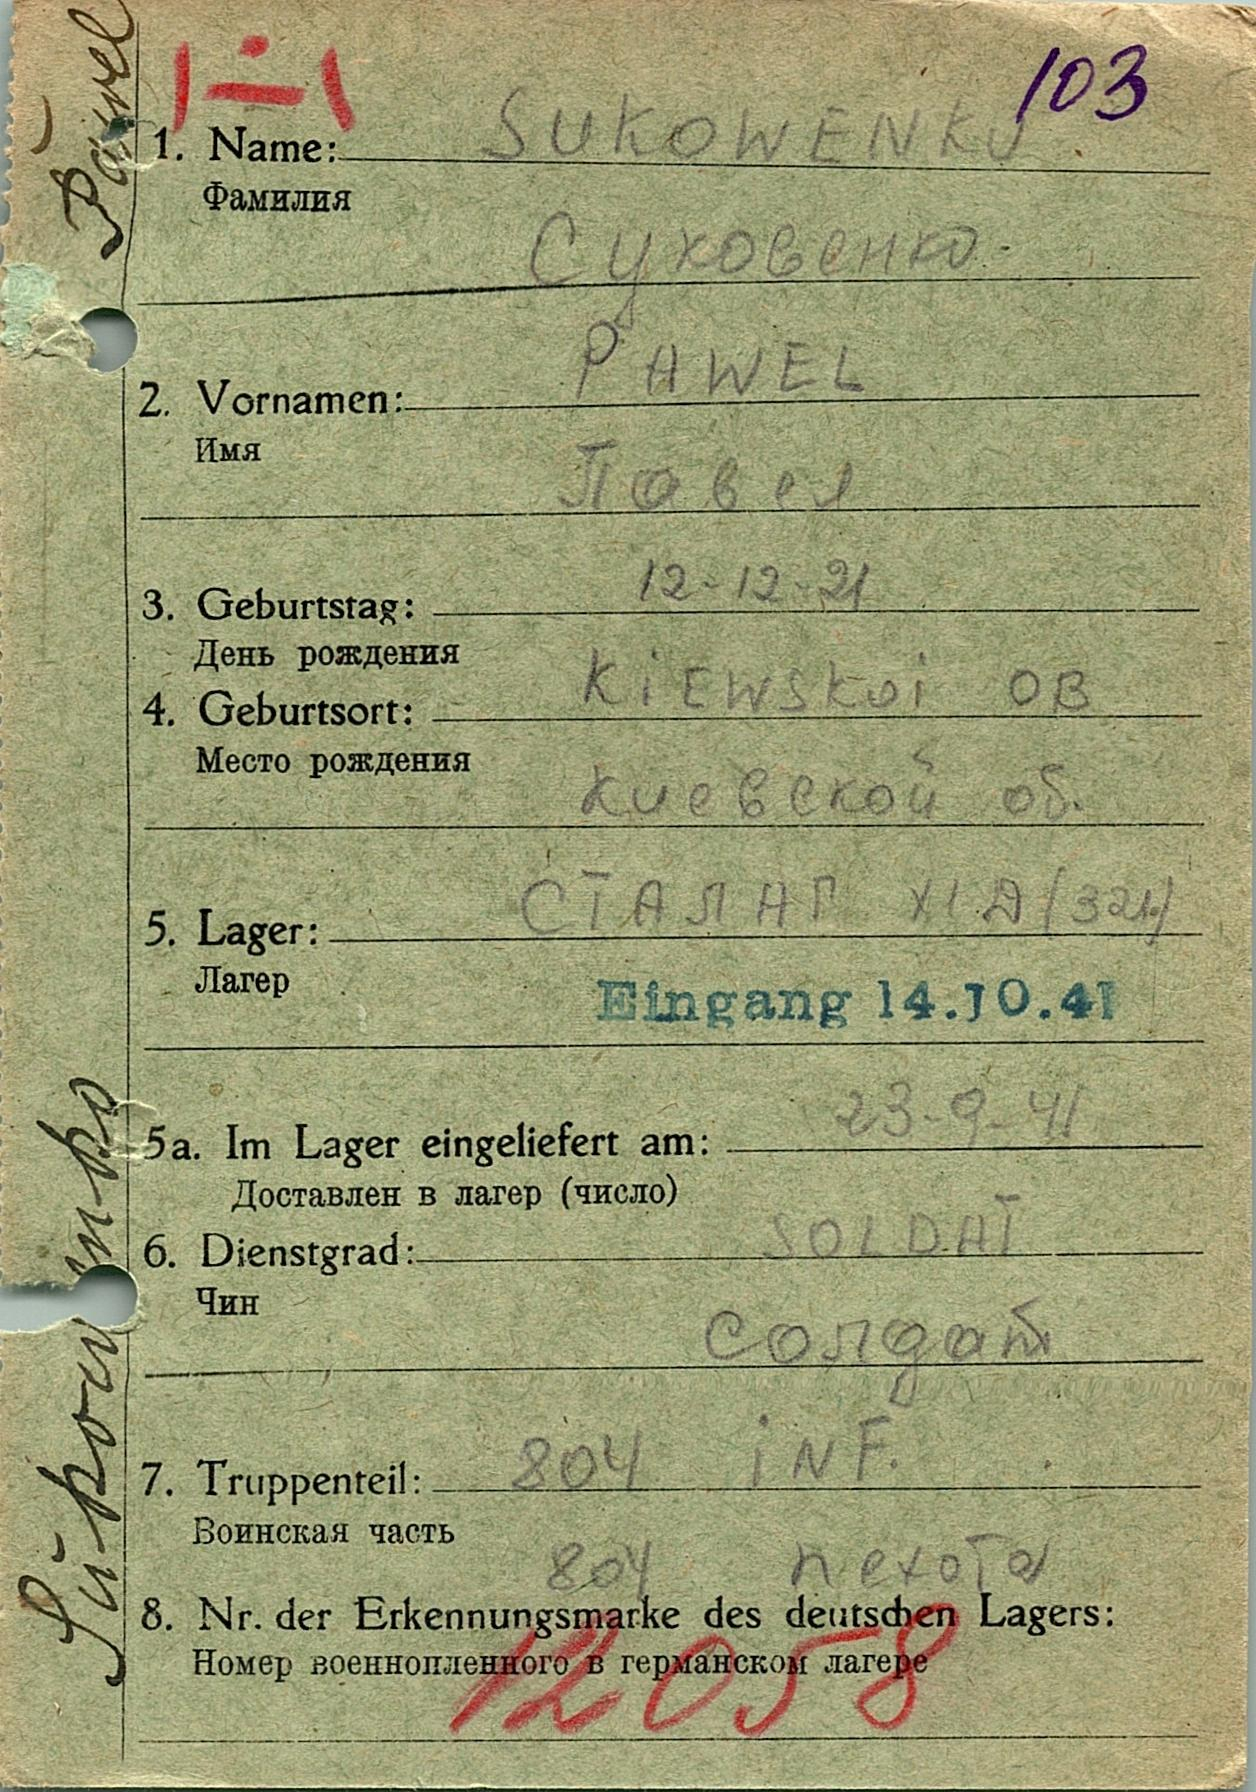 103
1. Name: SUKOWENKO
Фамилия
Суковенко
2. Vornamen: PAWEL
Имя
Павел
3. Geburtstag: 12-12-21
День рождения
4. Geburtsort: KiEWSKoi OB
Место рождения
Киевской об.
5. Lager: СТАЛАГ XI D (321)
Лагер
Eingang 14.10.41
5a. Im Lager eingeliefert am: 23-9-41
Доставлен в лагер (число)
6. Dienstgrad: SOLDAT
Чин
солдат
7. Truppenteil: 804 iNF.
Воинская часть
804 пехота
8. Nr. der Erkennungsmarke des deutschen Lagers:
Номер военнопленного в германском лагере
12058
Pawel